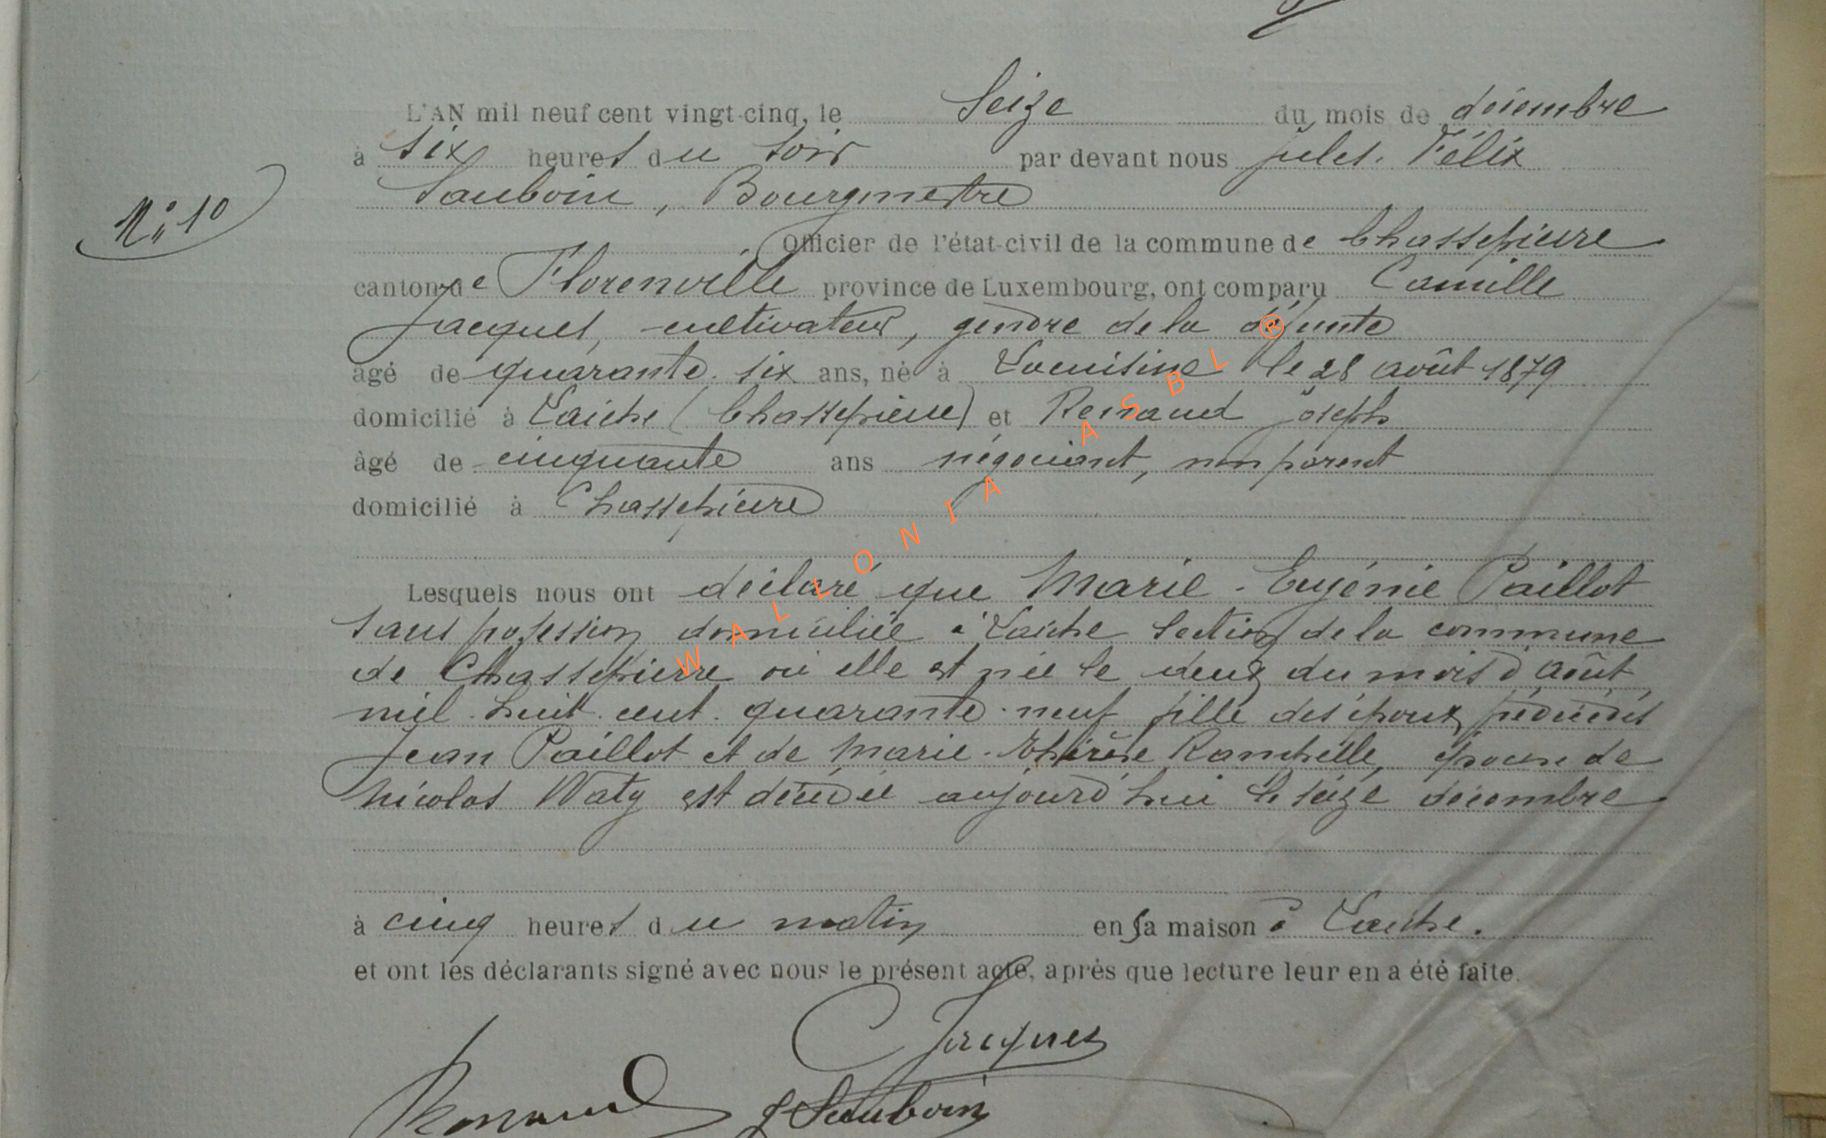 L'AN mil neuf cent vingt-cinq, le Seize du mois de décembre
à six heures du soir par devant nous Jules. Félix
Sauboin, Bourgmestre
N° 10
Officier de l'état-civil de la commune de Chassepierre
canton de Florenville province de Luxembourg, ont comparu Camille
Jacques, cultivateur, gendre de la défunte
âgé de quarante. six ans, né à le 28 août 1879
domicilié à Laiche (Chassepierre) et Renaud Joseph
âgé de cinquante ans négociant, non parent
domicilié à Chassepierre
Lesquels nous ont déclaré que Marie-Eugénie Paillot
sans profession domiciliée à Laiche Section de la commune
de Chassepierre où elle est née le deux du mois d'août
mil. huit. cent. quarante-neuf fille des époux prédécédés
Jean Paillot et de Marie-Thérèse épouse de
Nicolas Waty est décédée aujourd'hui le seize décembre
à cinq heures du matin en sa maison à Laiche.
et ont les déclarants signé avec nous le présent acte, après que lecture leur en a été faite.
C Jacques
Renaud J Sauboin
WALLONIA ASBL ®